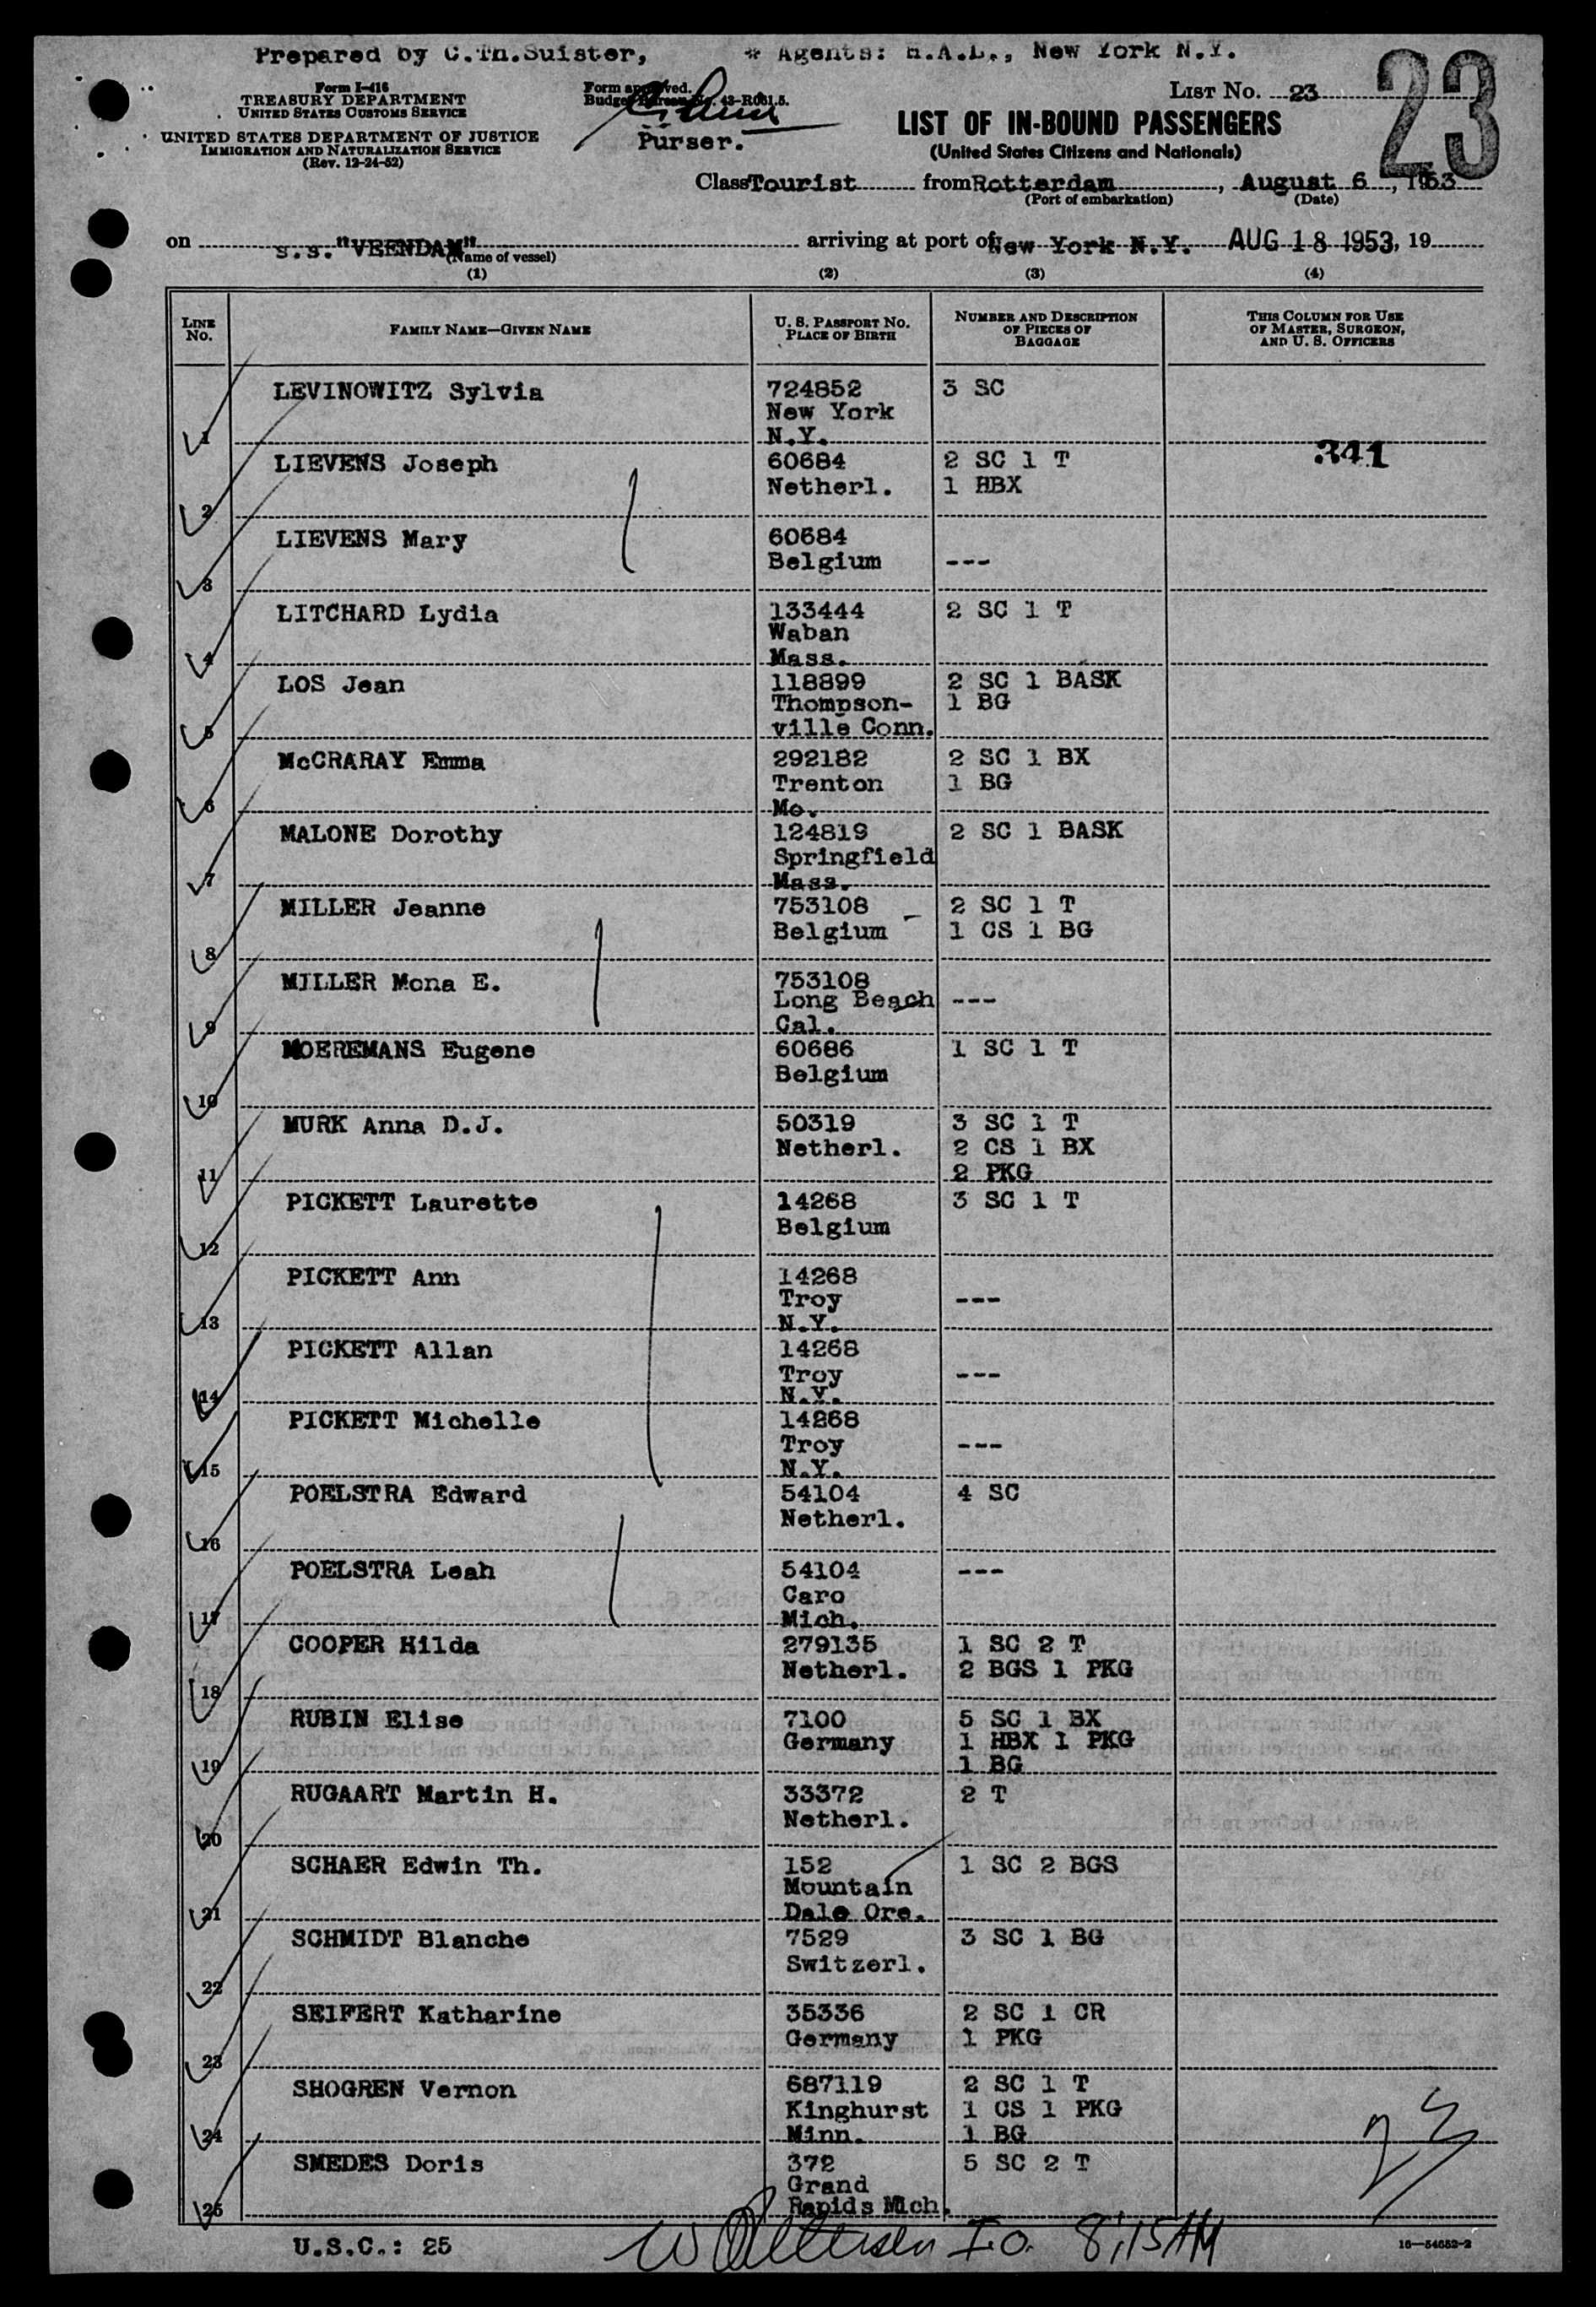 Prepared by C.Th.Suister, * Agents: H.A.L., New York N.Y.
23
Form I-416
TREASURY DEPARTMENT
UNITED STATES CUSTOMS SERVICE
UNITED STATES DEPARTMENT OF JUSTICE
IMMIGRATION AND NATURALIZATION SERVICE
(Rev. 12-24-52)
Form approved.
Budget Bureau No. 43-R061.5.
Purser.
LIST NO. 23
LIST OF IN-BOUND PASSENGERS
(United States Citizens and Nationals)
Class Tourist from Rotterdam, August 6, 1953
(Port of embarkation) (Date)
on s.s. "VEENDAM" arriving at port of New York N.Y. AUG 18 1953, 19
(Name of vessel)
(1) (2) (3) (4)
LINE NO. FAMILY NAME—GIVEN NAME U. S. PASSPORT NO. PLACE OF BIRTH NUMBER AND DESCRIPTION OF PIECES OF BAGGAGE THIS COLUMN FOR USE OF MASTER, SURGEON, AND U. S. OFFICERS
1 LEVINOWITZ Sylvia 724852 3 SC
New York
N.Y.
341
2 LIEVENS Joseph 60684 2 SC 1 T
Netherl. 1 HBX
3 LIEVENS Mary 60684
Belgium ---
4 LITCHARD Lydia 133444 2 SC 1 T
Waban
Mass.
5 LOS Jean 118899 2 SC 1 BASK
Thompson- 1 BG
ville Conn.
6 McCRARAY Emma 292182 2 SC 1 BX
Trenton 1 BG
Mo.
7 MALONE Dorothy 124819 2 SC 1 BASK
Springfield
Mass.
8 MILLER Jeanne 753108 2 SC 1 T
Belgium 1 CS 1 BG
9 MILLER Mona E. 753108
Long Beach ---
Cal.
10 MOEREMANS Eugene 60686 1 SC 1 T
Belgium
11 MURK Anna D.J. 50319 3 SC 1 T
Netherl. 2 CS 1 BX
2 PKG
12 PICKETT Laurette 14268 3 SC 1 T
Belgium
13 PICKETT Ann 14268
Troy ---
N.Y.
14 PICKETT Allan 14268
Troy ---
N.Y.
15 PICKETT Michelle 14268
Troy ---
N.Y.
16 POELSTRA Edward 54104 4 SC
Netherl.
17 POELSTRA Leah 54104 ---
Caro
Mich.
18 COOPER Hilda 279135 1 SC 2 T
Netherl. 2 BGS 1 PKG
19 RUBIN Elise 7100 5 SC 1 BX
Germany 1 HBX 1 PKG
1 BG
20 RUGAART Martin H. 33372 2 T
Netherl.
21 SCHAER Edwin Th. 152 1 SC 2 BGS
Mountain
Dale Ore.
22 SCHMIDT Blanche 7529 3 SC 1 BG
Switzerl.
23 SEIFERT Katharine 35336 2 SC 1 CR
Germany 1 PKG
24 SHOGREN Vernon 687119 2 SC 1 T
Kinghurst 1 CS 1 PKG
Minn. 1 BG
25 SMEDES Doris 372 5 SC 2 T
Grand
Rapids Mich.
23
U.S.C.: 25
I.O. 8:15 AM
16—54652-2